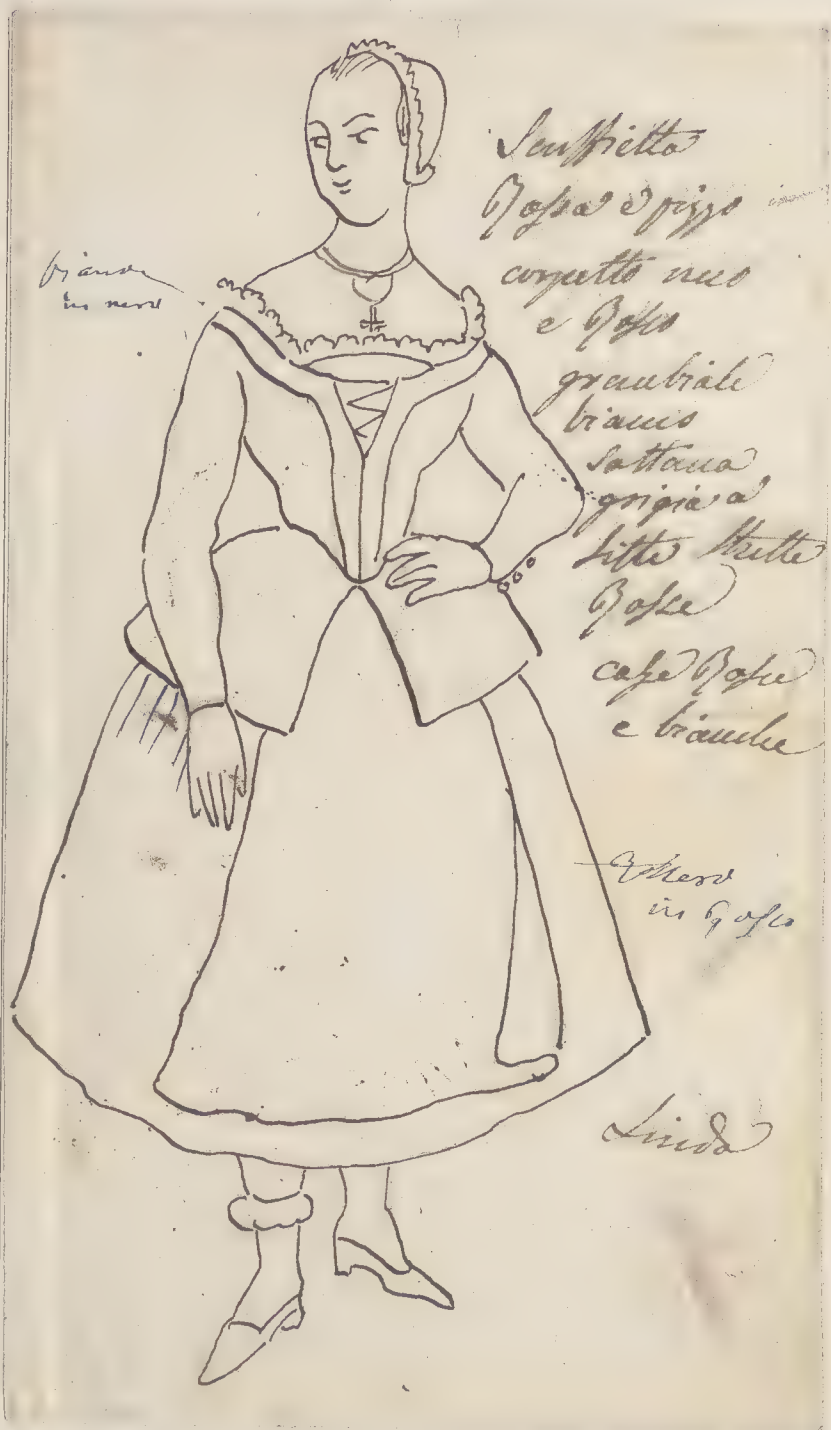 bianco
in nero
Scuffietta
Rossa e pizzo
corpetto nero
e Rosso
grembiale
bianco
sottana
grigia a
strette
Rosse
calze Rosse
e bianche
in Rosso
Linda